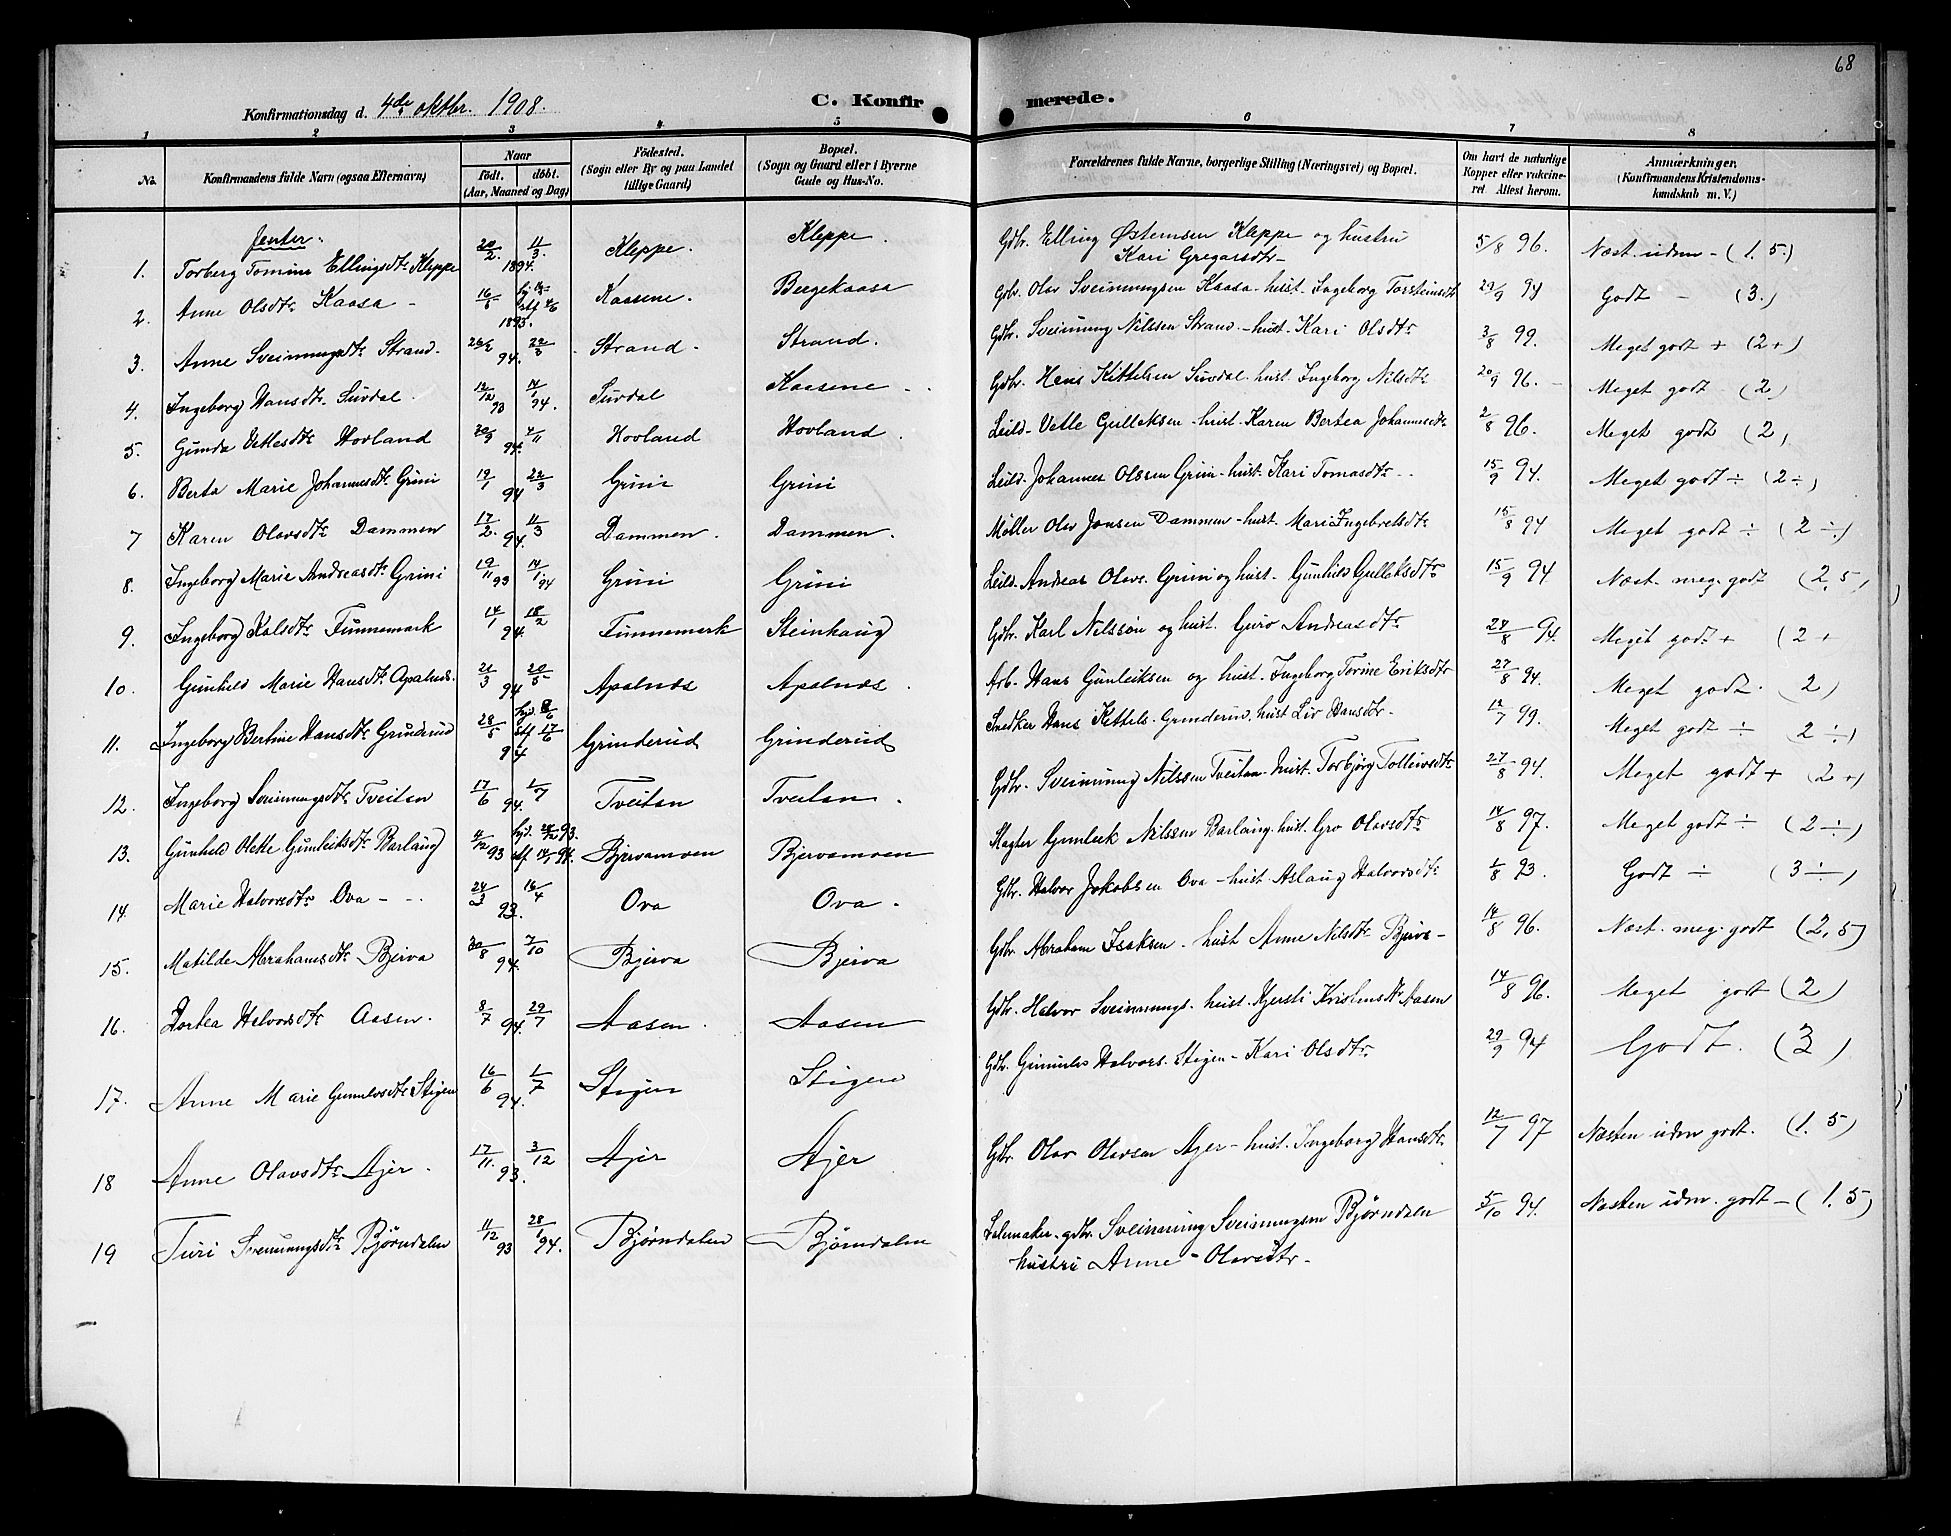 68
Konfirmationsdag d. 4de oktbr. 1908.
C. Konfirmerede.
1 2 3 4 5 6 7 8
No.
Konfirmandens fulde Navn (ogsaa Efternavn)
Naar
födt. döbt.
(Aar, Maaned og Dag)
Födested.
(Sogn eller By og paa Landet
tillige Gaard)
Bopæl.
(Sogn og Gaard eller i Byerne
Gade og Hus-No.
Forældrenes fulde Navne, borgerlige Stilling (Næringsvei) og Bopæl.
Om havt de naturlige
Kopper eller vakcine-
ret Attest herom.
Anmærkninger.
(Konfirmandens Kristendoms-
kundskab m. V.)
Jenter.
1. Torberg Tomine Ellingsdtr Kleppe 20/2 11/3 1894. Kleppe. Kleppe. Gdbr. Elling Østensen Kleppe og hustru
Kari Gregarsdtr 5/8 96. Næst. udm - (1.5)
2. Anne Olsdtr Kaasa - 16/5 1893. Kaasene. Bergekaasa Gdbr. Olav Sveinungsen Kaasa - hust. Ingeborg Torsteinsdtr 29/9 94 Godt - (3.)
3. Anne Sveinungsdtr Strand. 26/2 22/3 94. Strand. Strand. Gdbr. Sveinung Nilssen Strand - hust. Kari Olsdtr 3/8 99. Meget godt + (2+)
4. Ingeborg Hansdtr Suvdal 12/12 93 14/1 94. Suvdal Kaasene - Gdbr. Hans Kittelsen Suvdal. hust. Ingeborg Nilsdtr 20/9 96. - Meget godt - (2.)
5. Gunda Vetlesdtr Hovland 30/9 4/11 94. Hovland Hovland. Leild. Vetle Gulleksen - hust. Karen Bertea Johannesdtr 2/8 96. Meget godt (2)
6. Berta Marie Johannesdtr Grini 19/1 22/3 94 Grini Grini Leild. Johannes Olssen Grini - hust. Kari Tomasdtr - 15/9 94. Meget godt ÷ (2÷)
7 Karen Olavsdtr Dammen 17/2. 11/3 94. Dammen. Dammen. Møller Olav Jonsen Dammen - hust. Mari Ingebretsdtr 15/8 94 Meget godt ÷ (2÷)
8. Ingeborg Marie Andreasdtr Grini 19/11 93 14/1 94 Grini Grini Leild. Andreas Olavs. Grini og hust. Gunhild Gulleksdtr 15/9 94 Næst. meg. godt (2,5)
9. Ingeborg Kalsdtr Finnemark 14/1 18/2 94. Finnemark Steinhaug Gdbr. Karl Nilsson og hust. Guro Andreasdtr 28/8 94. Meget godt + (2+
10. Gunhild Marie Hansdtr Apalnæs. 21/3 20/5 94 Apalnæs Apalnæs. Arb. Hans Gunleiksen og hust. Ingeborg Torine Eriksdtr 27/8 94. Meget godt. (2)
11. Ingeborg Bertine Hansdtr Grinderud 28/5 hjd. 8/6 stf. 17/6 94 Grinderud Grinderud Snedker Hans Kittels. Grinderud. hust Liv Hansdtr. 12/7 99. Meget godt ÷ (2÷)
12. Ingeborg Sveinungsdtr Tveiten 17/6 1/7 94. Tveitan Tveitan. Gdbr. Sveinung Nilssen Tveitan - hust. Torbjørg Tolleivsdtr 27/8 94. Meget godt + (2+)
13. Gunhild Olette Gunleiksdtr Barlaug 4/12 93 hjd. 28/12 93. stf. 14/1 94. Bjervamoen Bjervamoen Magter Gunleik Nilssen Barlaug. hust. Gro Olavsdtr 14/8 97. Meget godt ÷ (2÷)
14 Marie Halvorsdtr Ova - - 24/3 16/4 93. Ova Ova. Gdbr. Halvor Jakobsen Ova - hust. Aslaug Halvorsdtr 1/8 93. Godt ÷ (3÷)
15. Matilde Abrahamsdtr Bjerva 30/8 7/10 94. Bjerva Bjerva Gdbr. Abraham Isaksen - hust Anne Nilsdtr Bjerva - 14/8 96. Næst. meg. godt (2,5)
16. Dortea Halvorsdtr Aasen. 8/7 29/7 94. Aasen. Aasen Gdbr. Halvor Sveinungs. hust. Kjersti Kristensdtr Aasen 14/8 96. Meget godt (2)
17. Anne Marie Gunulvsdtr Stigen 16/6 1/7 94. Stigen Stigen Gdbr. Gunulv Halvors. Stigen - Kari Olsdtr. 29/9 94 Godt. (3)
18 Anne Olavsdtr Ajer. 17/11. 3/12 93. Ajer Ajer Gdbr. Olav Olavsen Ajer - hust. Ingeborg Hansdtr 12/7 97 Næsten udm godt. (1.5)
19 Turi Sveinungsdtr Bjørndalen 11/12 93 28/1 94. Bjørndalen Bjørndalen Salmaker. gdbr. Sveinung Sveinungsen Bjørndalen
hustru Anne Olavsdtr - 5/10 94. Næsten udm. godt - (1.5)